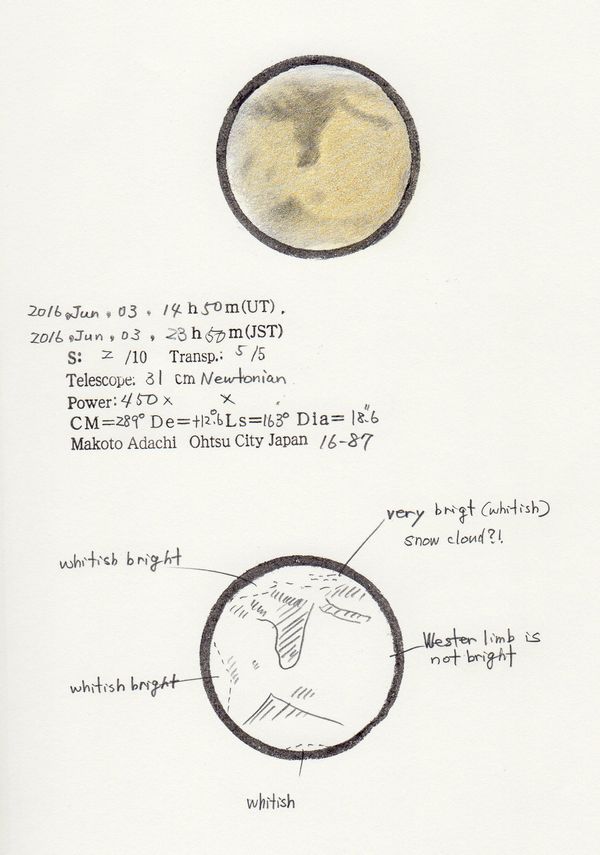 2016, Jun, 03, 14 h 50 m (UT).
2016, Jun, 03, 23 h 50 m (JST)
S: 2 /10 Transp.: 5 /5
Telescope: 31 cm Newtonian
Power: 450 x x
CM=289° De=+12.°6 Ls=163° Dia= 18."6
Makoto Adachi Ohtsu City Japan 16-87
very brigt (whitish)
snow cloud?!
whitish bright
Wester limb is
not bright
whitish bright
whitish